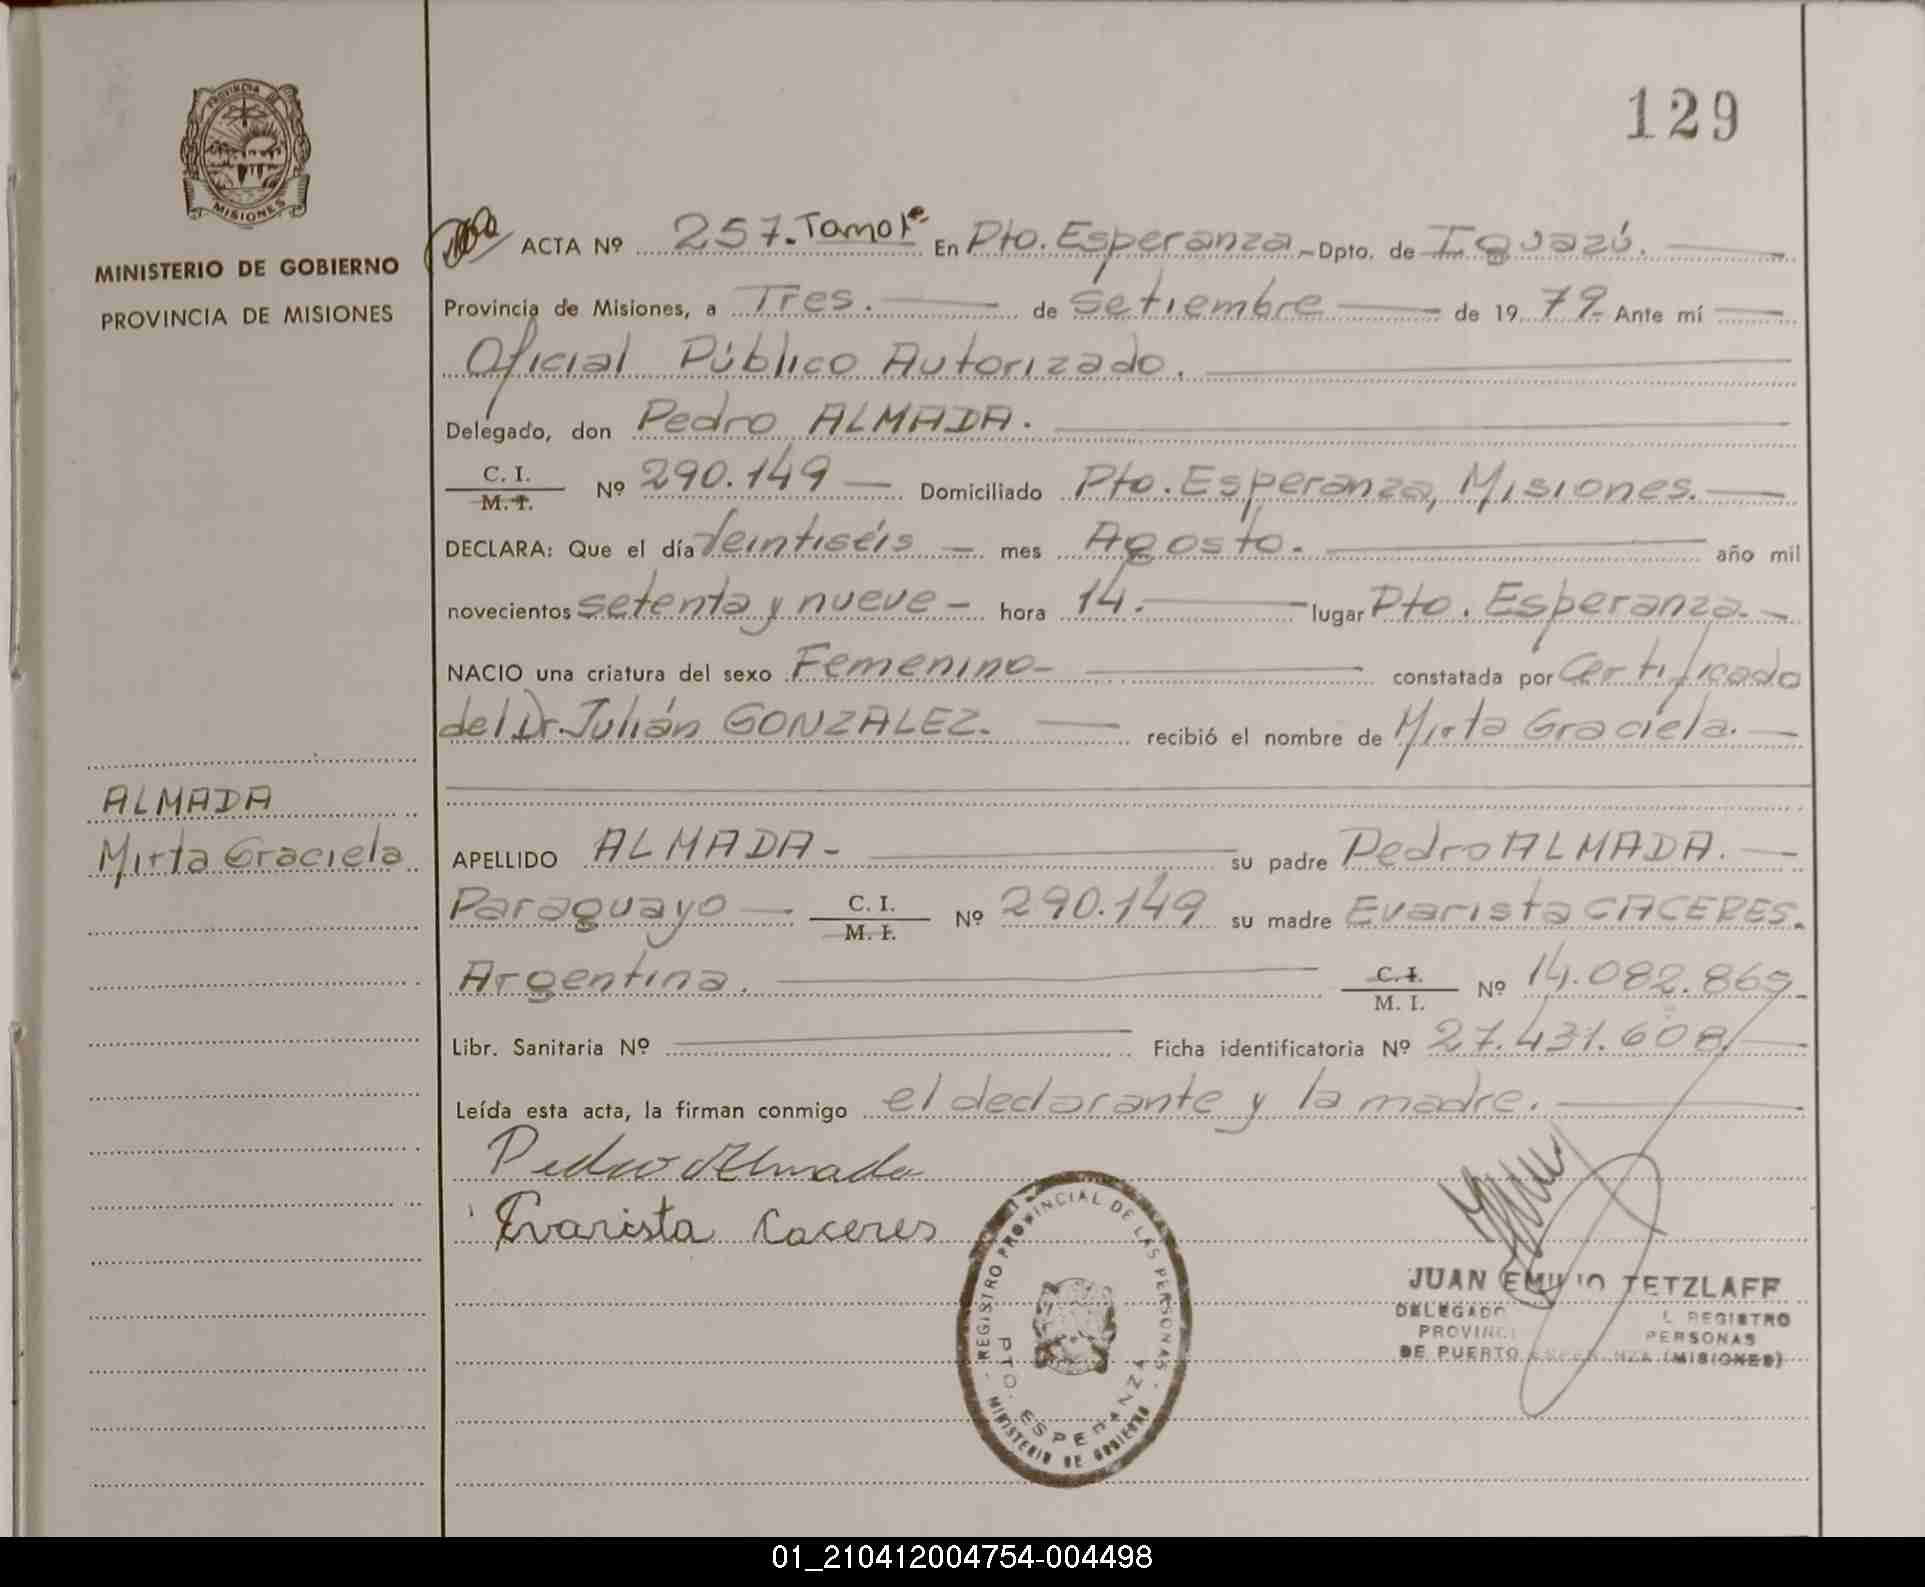 129
PROVINCIA DE
MISIONES
MINISTERIO DE GOBIERNO
PROVINCIA DE MISIONES
ALMADA
Mirta Graciela
ACTA Nº 257. Tomo Iº En Pto. Esperanza - Dpto. de Iguazú.
Provincia de Misiones, a Tres. de Setiembre de 1979. Ante mí
Oficial Público Autorizado.
Delegado, don Pedro ALMADA.
C. I.
M. I. Nº 290.149 Domiciliado Pto. Esperanza, Misiones.
DECLARA: Que el día Veintiséis mes Agosto. año mil
novecientos setenta y nueve - hora 14. lugar Pto. Esperanza.
NACIO una criatura del sexo Femenino - constatada por Certificado
del Dr. Julián GONZALEZ. recibió el nombre de Mirta Graciela.
APELLIDO ALMADA - su padre Pedro ALMADA.
Paraguayo C. I.
M. I. Nº 290.149 su madre Evarista CACERES.
Argentina. C. I.
M. I. Nº 14.082.869
Libr. Sanitaria Nº Ficha identificatoria Nº 27.431.608
Leída esta acta, la firman conmigo el declarante y la madre.
Pedro Almada
Evarista Caceres
REGISTRO PROVINCIAL DE LAS PERSONAS
PTO. ESPERANZA
MINISTERIO DE GOBIERNO
JUAN EMILIO TETZLAFF
DELEGADO REGISTRO
PERSONAS
DE PUERTO ESPERANZA (MISIONES)
01_210412004754-004498